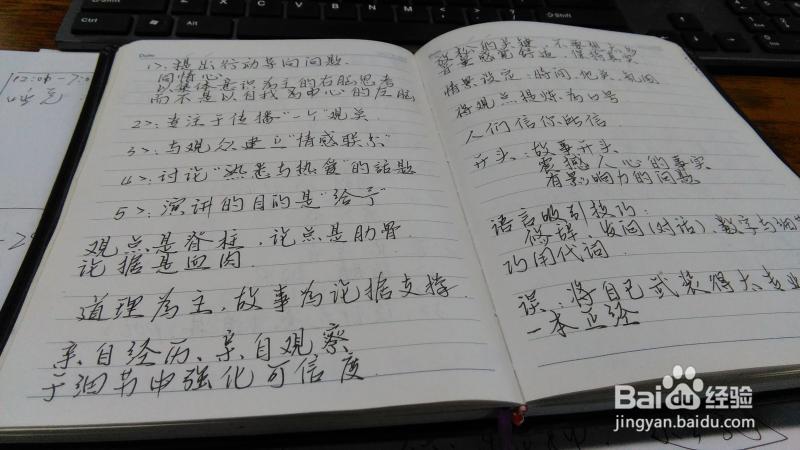 1>. 提出行动导向问题.
同情心
以集体意识为主的右脑思考
而不是以自我为中心的左脑
2>: 专注于传播"一个"观点
3>: 与观众建立"情感联系"
4>: 讨论"熟悉与热爱"的话题
5>: 演讲的目的是"给予"
观点是脊柱，论点是肋骨
论据是血肉.
道理为主，故事为论据支撑.
亲自经历、亲自观察
于细节中强化可信度
情景设定：时间，地点，氛围
将观点提炼为口号
人们信你所信
开头：故事开头
震撼人心的事实
有影响力的问题
语言吸引技巧：
修辞，设问(对话)，数字与
巧用代词
误：将自己武装得太专业
一本正经
12:00-7:0
Baidu 经验
jingyan.baidu.com